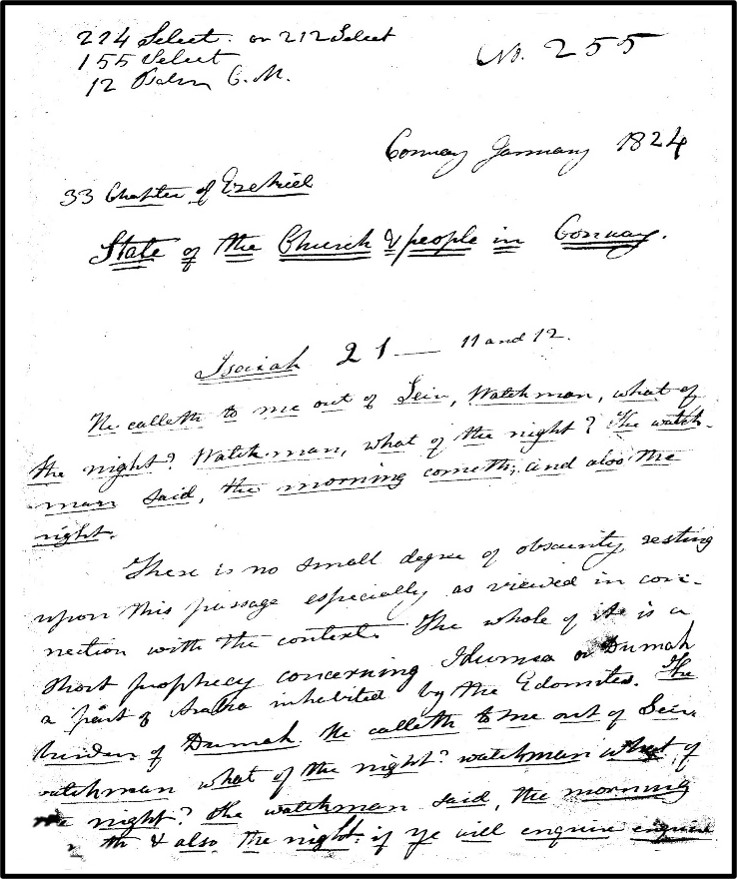 224 Select. or 212 Select
155 Select
12 Psalm C. M.
No. 255
Conway January 1824
33 Chapter of Ezekiel
State of the Church & people in Conway.
Isaiah 21 — 11 and 12.
He calleth to me out of Seir, Watchman, what of
the night? Watchman, what of the night? The watch-
man said, the morning cometh, and also the
night.
There is no small degree of obscurity resting
upon this passage especially as viewed in con-
nection with the context. The whole of it is a
short prophecy concerning Idumea or Dumah
a part of Arabia inhabited by the Edomites. The
burden of Dumah. He calleth to me out of Seir
watchman what of the night? watchman what of
the night? The watchman said, the morning
th & also the night: if ye will enquire enquire